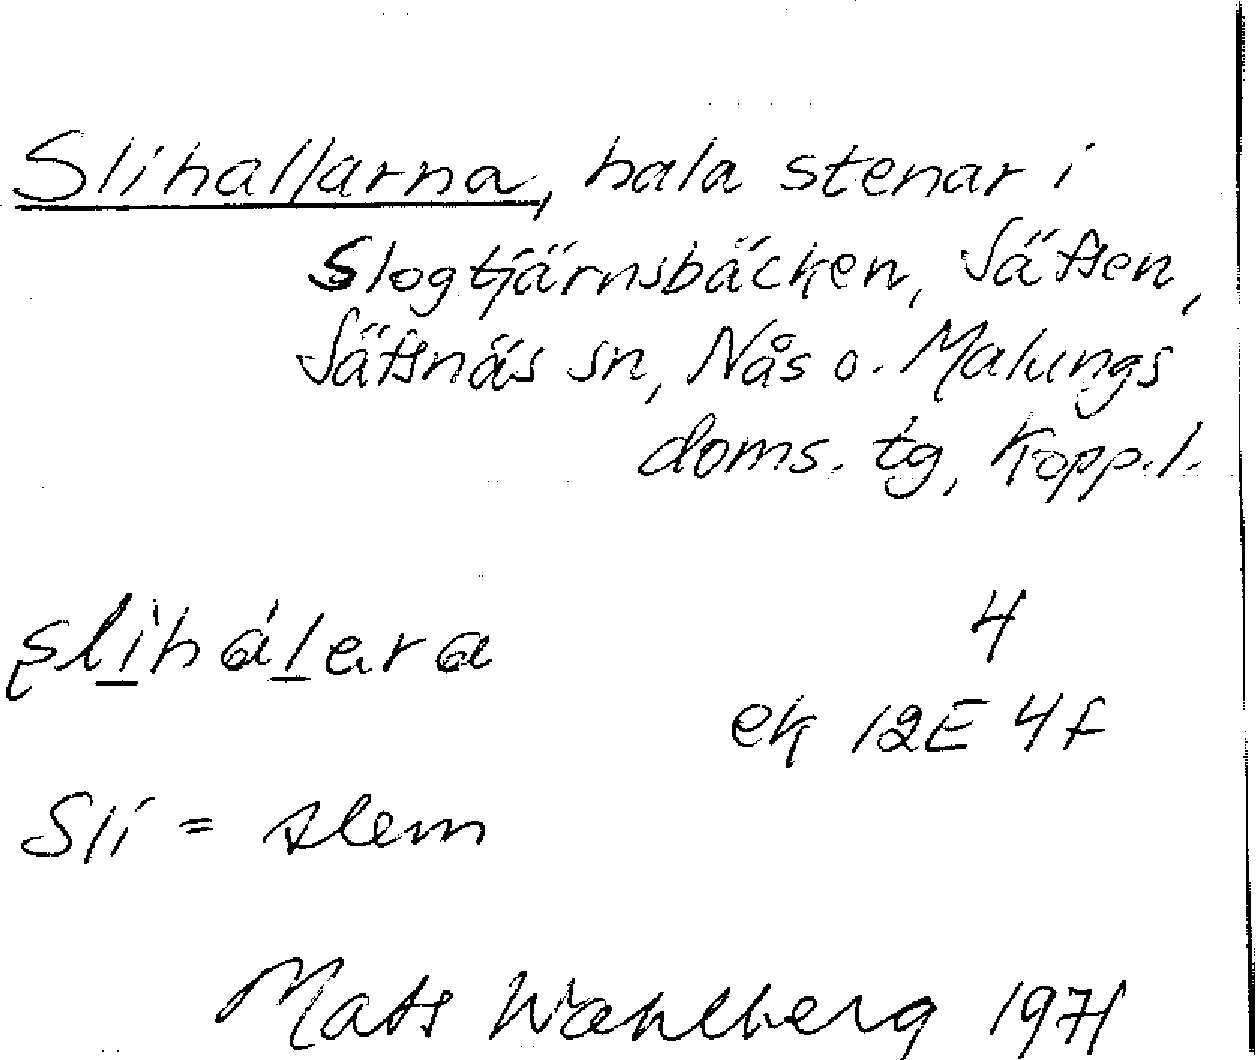 Slihallarna, hala stenar i
Slogtjärnsbäcken, Säfsen,
Säfsnäs sn, Nås o. Malungs
doms. tg, Kopp.l.
4
ek 12E 4f
Sli = slem
Mats Wahlberg 1971